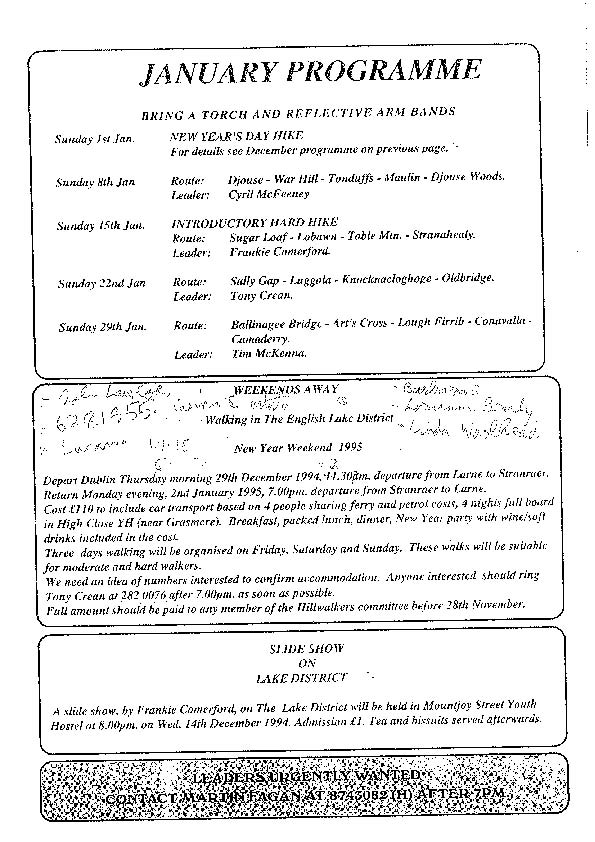 JANUARY PROGRAMME
BRING A TORCH AND REFLECTIVE ARM BANDS
Sunday 1st Jan. NEW YEAR'S DAY HIKE
For details see December programme on previous page.
Sunday 8th Jan Route: Djouse - War Hill - Tonduffs - Maulin - Djouse Woods.
Leader: Cyril McFeeney
Sunday 15th Jan. INTRODUCTORY HARD HIKE
Route: Sugar Loaf - Lobawn - Table Mtn. - Stranahealy.
Leader: Frankie Comerford.
Sunday 22nd Jan Route: Sally Gap - Luggola - Knocknacloghoge - Oldbridge.
Leader: Tony Crean.
Sunday 29th Jan. Route: Ballinagee Bridge - Art's Cross - Lough Firrib - Conavalla -
Camaderry.
Leader: Tim McKenna.
WEEKENDS AWAY
Walking in The English Lake District
Linda
New Year Weekend 1995
Depart Dublin Thursday morning 29th December 1994, 11.30pm, departure from Larne to Stranraer.
Return Monday evening, 2nd January 1995, 7.00pm, departure from Stranraer to Larne.
Cost £110 to include car transport based on 4 people sharing ferry and petrol costs, 4 nights full board
in High Close YH (near Grasmere). Breakfast, packed lunch, dinner, New Year party with wine/soft
drinks included in the cost.
Three days walking will be organised on Friday, Saturday and Sunday. These walks will be suitable
for moderate and hard walkers.
We need an idea of numbers interested to confirm accommodation. Anyone interested should ring
Tony Crean at 282 0076 after 7.00pm, as soon as possible.
Full amount should be paid to any member of the Hillwalkers committee before 28th November.
SLIDE SHOW
ON
LAKE DISTRICT
A slide show, by Frankie Comerford, on The Lake District will be held in Mountjoy Street Youth
Hostel at 8.00pm, on Wed, 14th December 1994. Admission £1. Tea and bissuits served afterwards.
LEADERS URGENTLY WANTED
CONTACT MARTIN FAGAN AT 8745082 (H) AFTER 7PM